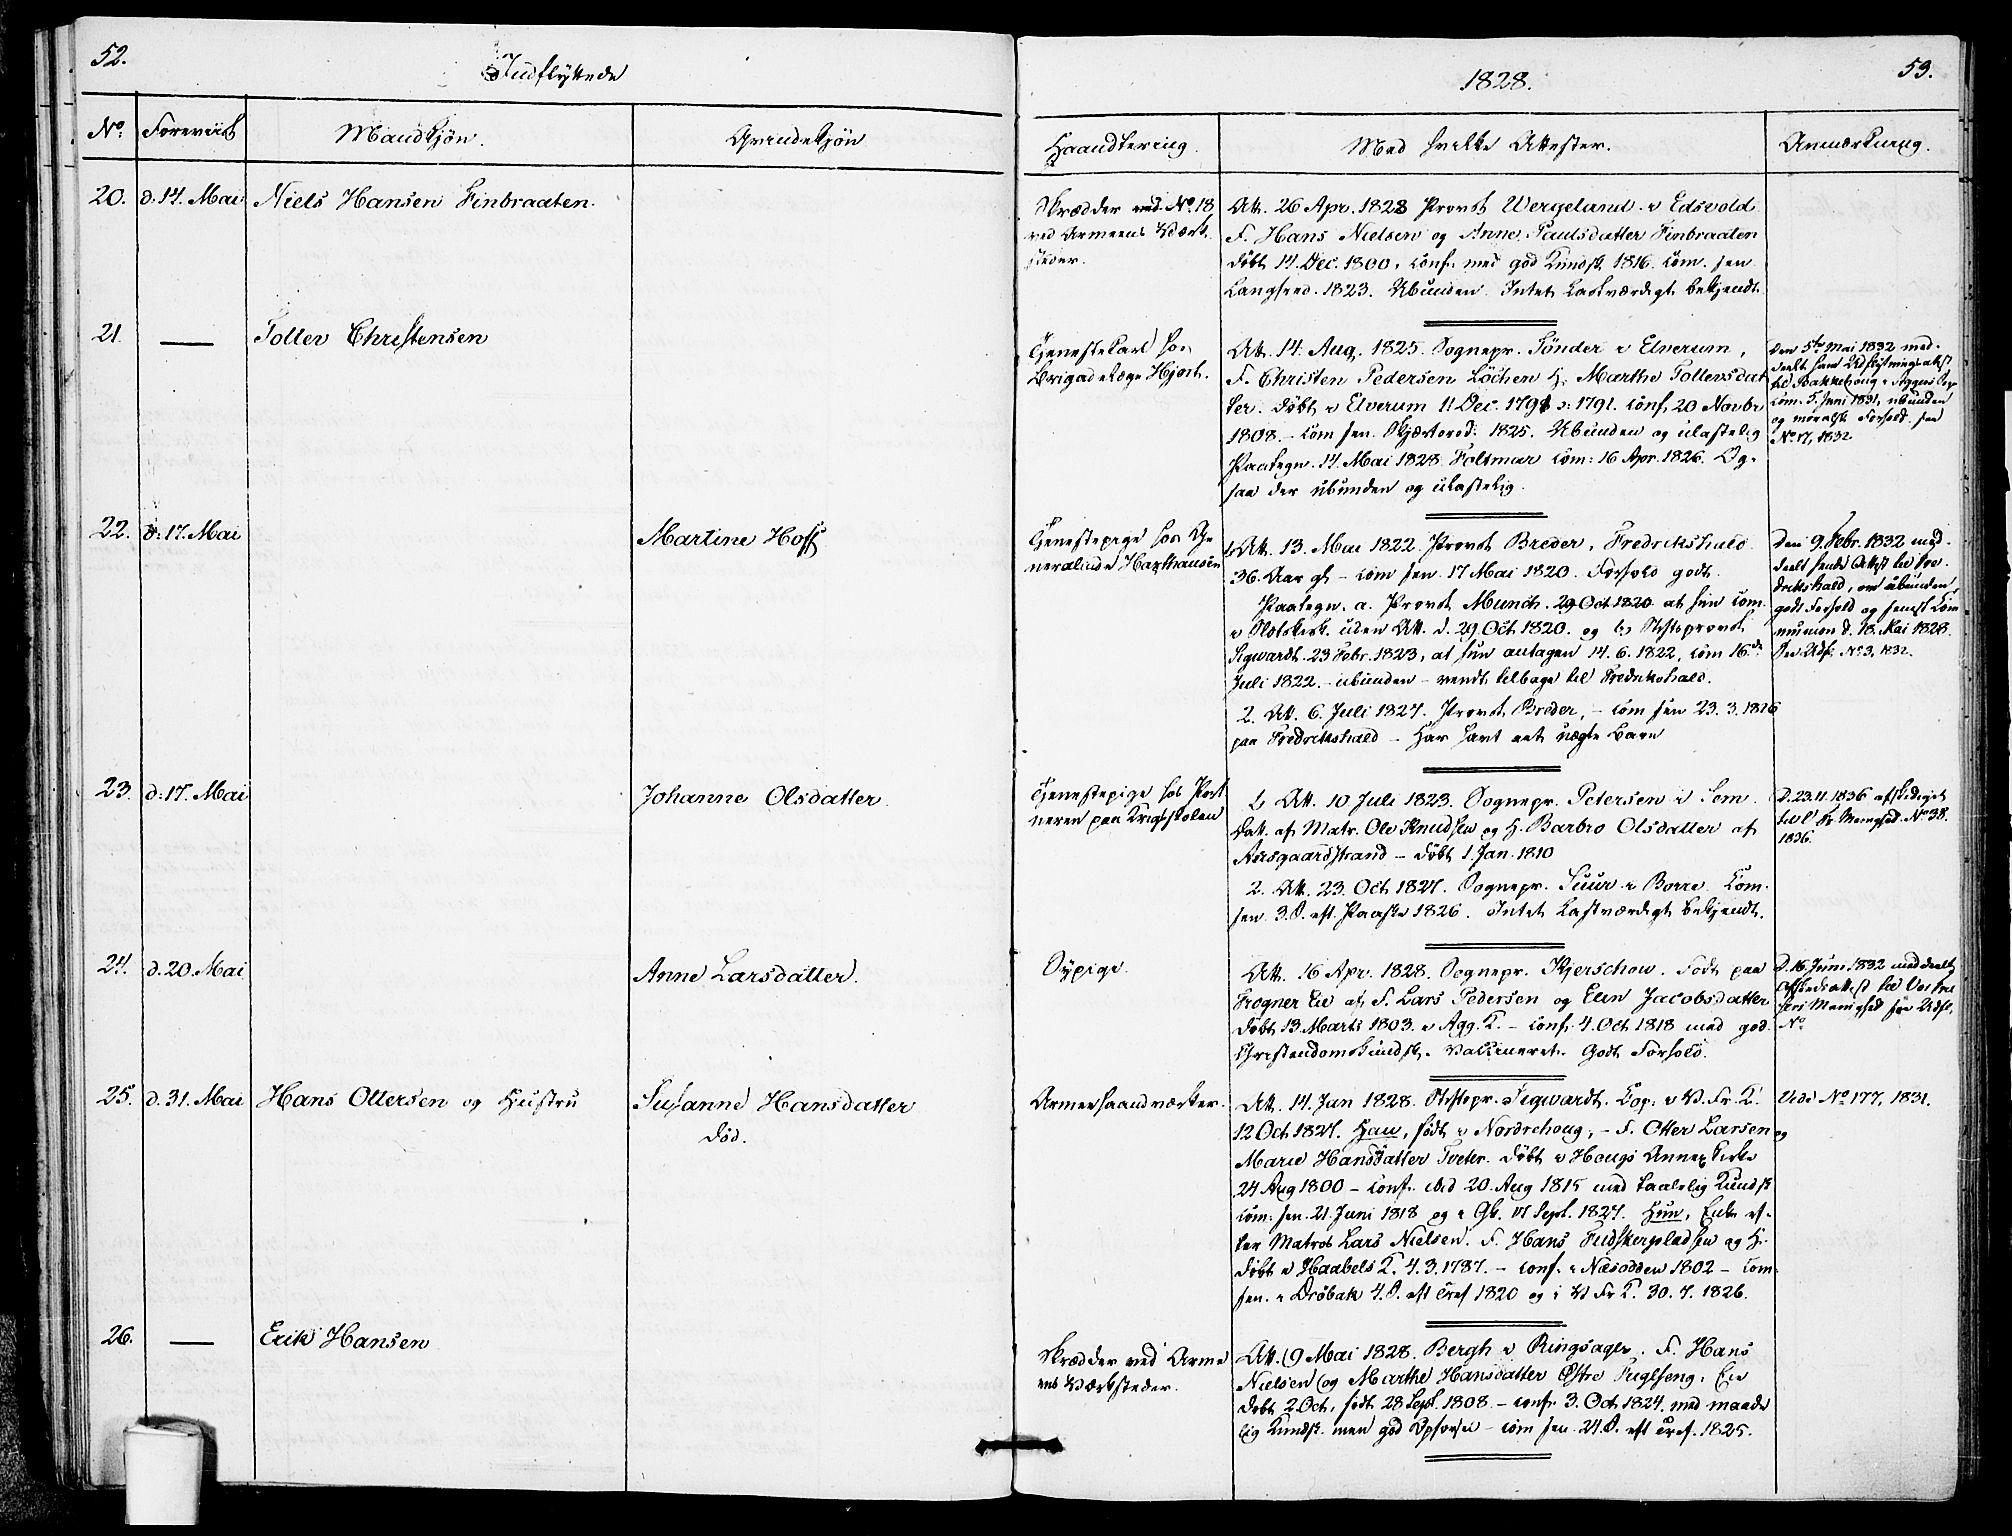 52.
Indflyttede
1828.
53.
No. Foreviist Mandkjøn. Qvindekjøn Haandtering. Med hvilke Attester. Anmærkning.
20. d. 14. Mai Niels Hansen Finbraaten.
Skrædder ved No. 18
ved Armeens Værk
steder.
Att. 26 Apr. 1828 Provst Wergeland i Edsvold
F. Hans Nielsen og Anne Paulsdatter Finbraaten
døbt 14. Dec. 1800, conf. med god Kundsk. 1816. com. sen
Langfred. 1823. Ubunden. Intet Lastværdigt bekjendt
21. — Toller Christensen
Tjenestekarl hos
Brigadelæge Hjort.
Att. 14. Aug. 1825. Sognepr. Tønder i Elverum,
F. Christen Pedersen Löchen & Marthe Tollersdat
ter. døbt i Elverum 11 Dec. 1791 ɔ: 1791. conf. 20 Novbr
1808. – com sen. Skjærtorsd. 1825. Ubunden og ulastelig
Paategn. 14. Mai 1828. Holtmar com: 16 Apr. 1826. Og-
saa der ubunden og ulastelig.
Den 5te Mai 1832 med-
deelt ham Udflytningsattest
til Bakkehoug i Aggers
com. 5. Juni 1831, ubunden
og moralsk Forhold. see
No. 17, 1832
22. d. 17. Mai Martine Hoff
Tjenestepige hos Ge
neralinde Haxthausen
1. Att. 13. Mai 1822. Provst Breder, Fredrikshald
36. Aar gl – com sen. 17 Mai 1820. Forhold godt.
Paategn. a. Provst Munch. 29 Oct 1820 at hun com.
i Slotskirk. uden Att. d. 29 Oct. 1820. og b) Stiftsprovst
Sigwardt. 23 Febr. 1823, at hun antagen 14. 6. 1822, com 16de
Juli 1822. – ubunden – vendt tilbage til Fredrikshald.
2. Att. 6. Juli 1827. Provst Breder, – com sen 23. 3. 1826
paa Fredrikshald – Har havt eet uægte Barn
Den 9. Febr. 1832 med-
deelt hende Attest til Fre-
drikshald, om ubunden
godt Forhold og senest Com
munion d. 18. Mai 1828.
See Udfl. No. 3, 1832.
23. d. 17. Mai Johanne Olsdatter
Tjenestepige hos Port
neren paa Krigsskolen
1. Att. 10 Juli 1823. Sognepr. Petersen i Sem.
Datt. af Matr. Ole Knudsen og H. Barbro Olsdatter af
Aasgaardstrand – døbt 1. Jan. 1810
2. Att. 23. Oct 1827. Sognepr. Suur i Borre. Com.
sen. 3. S. eft. Paaske 1826. Intet Lastværdigt bekjendt.
D. 23. 11. 1836 afskediget
til Menighed. No. 38.
1836.
24. d. 20. Mai Anne Larsdatter.
Sypige.
Att. 16 Apr. 1828. Sognepr. Kjerschow. Født paa
Frogner Eie af F. Lars Pedersen og Elen Jacobsdatter
døbt 13. Marts 1803. i Agg. K. – conf. 4. Oct 1818 med god.
Christendomskundsk. Vaccineret. Godt Forhold.
D. 16. Juni 1832 meddeelt
Afskedsattest til Vor Frel
sers Menighed see Udfl.
No
25. d. 31. Mai Hans Ottersen og Hustru Susanne Hansdatter
død.
Armeehaandværker.
Att. 14. Jan 1828. Stiftspr. Sigwardt. Cop. i V. Fr. K.
12 Oct. 1827. Han, født i Norderhoug, – F. Otter Larsen og
Marie Hansdatter Tveter. døbt i Hougs Annex Kirke
24 Aug 1800 – conf. ibid 20. Aug 1815 med taalelig Kundsk
com: sen. 21. Juni 1818 og i Gk. 17 Sept. 1827. Hun, Enke ef-
ter Matros Lars Nielsen. F. Hans Fudskerpladsen og H.
døbt i Haabels K. 4. 3. 1787. – conf. i Næsodden 1802 – com-
sen. i Drøbak 4. S. eft Tref 1820 og i V Fr K. 30. 7. 1826.
Vide No. 177, 1831.
26. — Erik Hansen
Skrædder ved Arme
ens Værksteder.
Att. 9 Mai 1828. Bergh i Ringsager. F. Hans
Nielsen og Marthe Hansdatter Østre Fuglseng. Eie
døbt 2 Oct, født 28 Sept. 1808. – conf. 3. Oct 1824. med maade
lig Kundsk. men god Opførsel – com sen. 24. S. eft Tref. 1825.